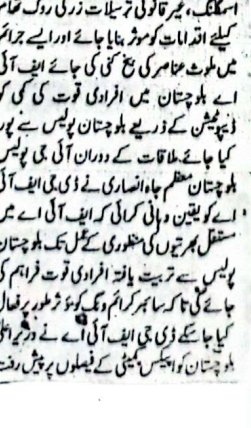 اسمگلنگ، غیر قانونی ترسیلات زر کی روک تھام
کیلئے اقدامات کو موثر بنایا جائے اور ایسے جرائم
میں ملوث عناصر کی بیخ کنی کی جائے ایف آئی
اے بلوچستان میں افرادی قوت کی کمی کو
ڈیپوٹیشن کے ذریعے بلوچستان پولیس سے پور
کیا جائے ملاقات کے دوران آئی جی پولیس
بلوچستان معظم جاہ انصاری نے ڈی جی ایف آئی
اے کو یقین دہانی کرائی کہ ایف آئی اے میں
مستقل بھرتیوں کی منظوری کے عمل تک بلوچستان
پولیس سے تربیت یافتہ افرادی قوت فراہم کی
جائے گی تاکہ سائبر کرائم ونگ کو موثر طور پر فعال
کیا جاسکے ڈی جی ایف آئی اے نے وزیر اعلیٰ
بلوچستان کو اپیکس کمیٹی کے فیصلوں پر پیش رفت